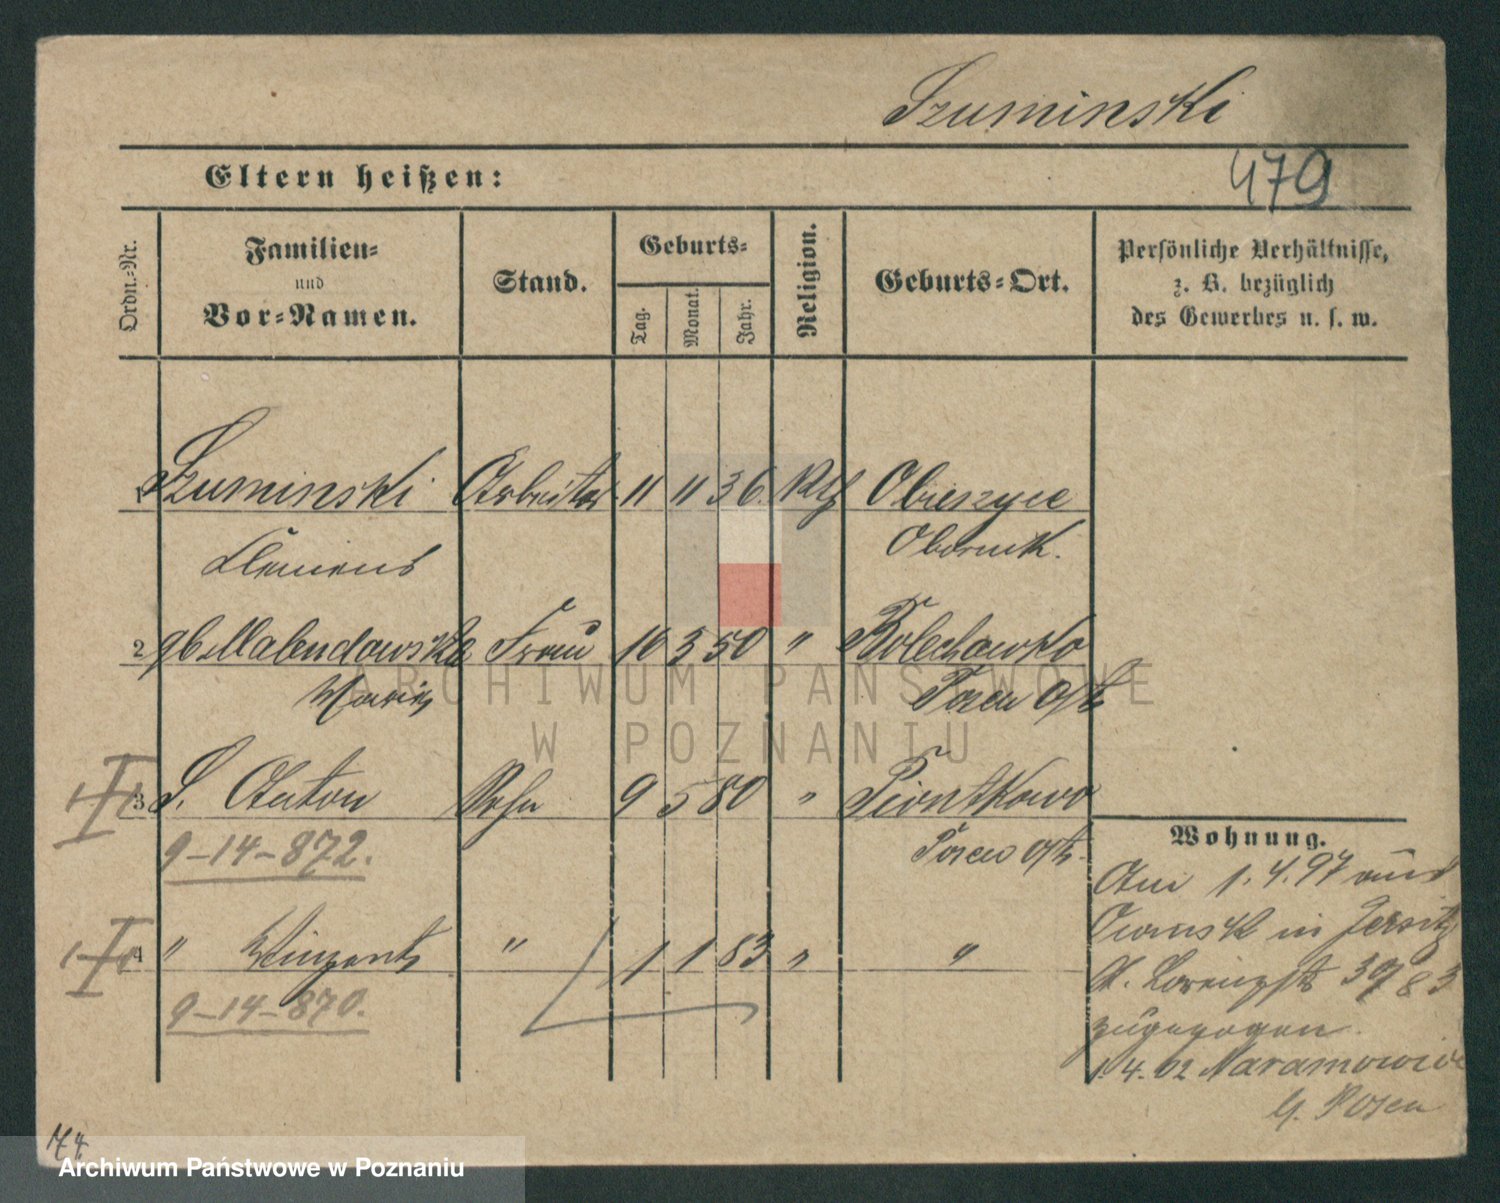 Szuminski
Eltern heißen:
479
Ordn.-Nr.
Familien-
und
Vor-Namen.
Stand.
Geburts-
Tag.
Monat.
Jahr.
Religion.
Geburts-Ort.
Persönliche Verhältnisse,
z. B. bezüglich
des Gewerbes u. s. w.
Szuminski Arbeiter 11 11 36. Kth Obiezyce
Clemens Obornik.
2 gb. Malendowska Frau 16 3 50 " Bolechowko
Marie Posen Ost
3 S. Anton Sohn 9 5 80 " Piontkowo
9-14-872. Posen Ost.
4 " Vinzent " 1 1 83 " "
9-14-870.
Wohnung.
Am 1.4.97 aus
in Jersitz
St. Lorenzstr 39 83
zugezogen.
1.4.02 Naramowice
Posen
ARCHIWUM PAŃSTWOWE
W POZNANIU
74
Archiwum Państwowe w Poznaniu